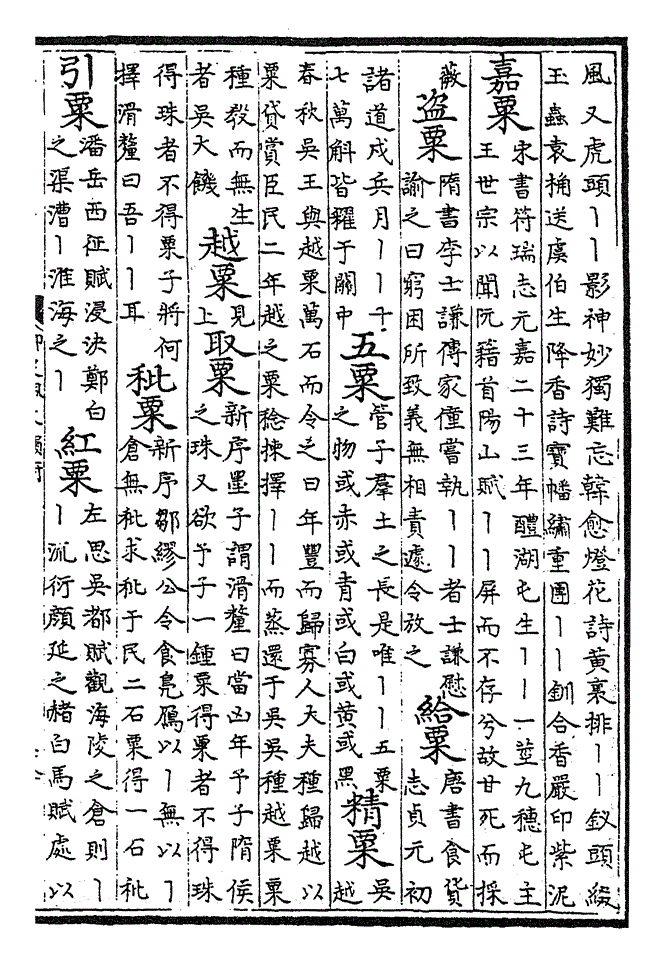 風又虎頭丨丨影神妙獨難忘韓愈燈花詩黄裏排丨丨釵頭綴
玉蟲袁桷送虞伯生降香詩寶幡繡重團丨丨釧合香嚴印紫泥
嘉粟
宋書符瑞志元嘉二十三年醴湖屯生丨丨一莖九穗屯主
王世宗以聞阮籍首陽山賦丨丨屏而不存兮故甘死而採
薇
盗粟
隋書李士謙傳家僮嘗執丨丨者士謙慰
諭之曰窮困所致義無相責遽令放之
給粟
唐書食貨
志貞元初
諸道戍兵月丨丨十
七萬斛皆糴于關中
五粟
管子羣土之長是唯丨丨五粟
之物或赤或青或白或黄或黑
精粟
吳
越
春秋吳王與越粟萬石而令之曰年豐而歸寡人大夫種歸越以
粟貸賞臣民二年越之粟稔揀擇丨丨而蒸還于吳吳種越粟粟
種殺而無生
者吳大饑
越粟
見
上
取粟
新序墨子謂滑釐曰當凶年予子隋侯
之珠又欲予子一鍾粟得粟者不得珠
得珠者不得粟子將何
擇滑釐曰吾丨丨耳
秕粟
新序鄒繆公令食鳧鴈以丨無以丨
倉無秕求秕于民二石粟得一石秕
引粟
潘岳西征賦浸決鄭白
之渠漕丨淮海之丨
紅粟
左思吳都賦觀海陵之倉則丨
丨流衍顔延之赭白馬賦處以